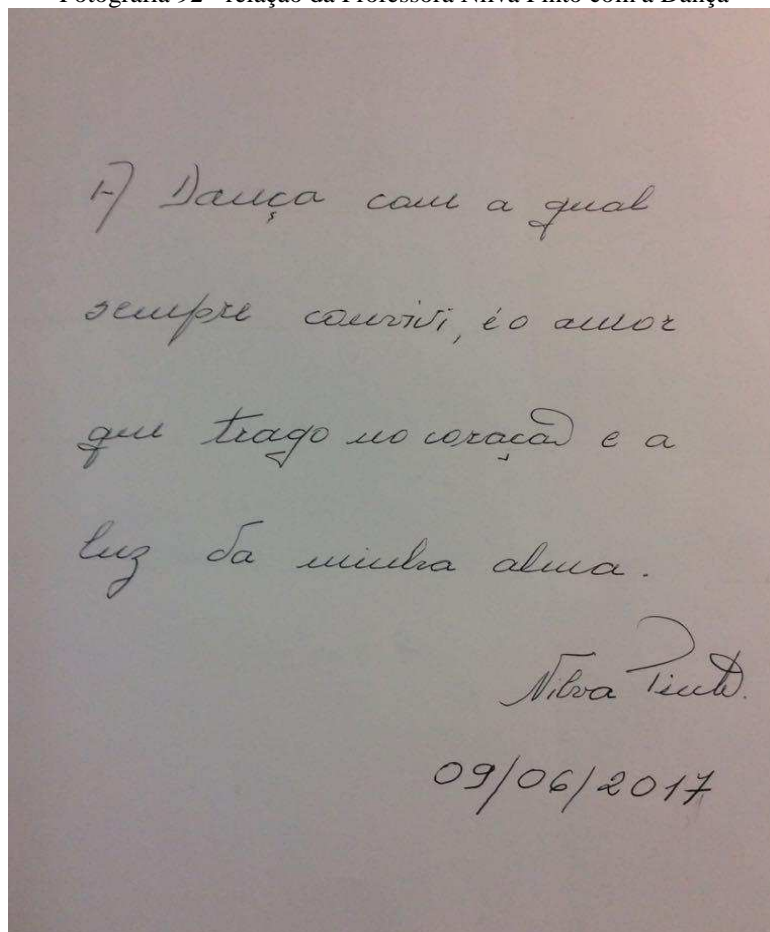 Fotografia 92 - relação da Professora Nilva Pinto com a Dança
A Dança com a qual
sempre convivi, é o amor
que trago no coração e a
luz da minha alma.
Nilva Pinto.
09/06/2017